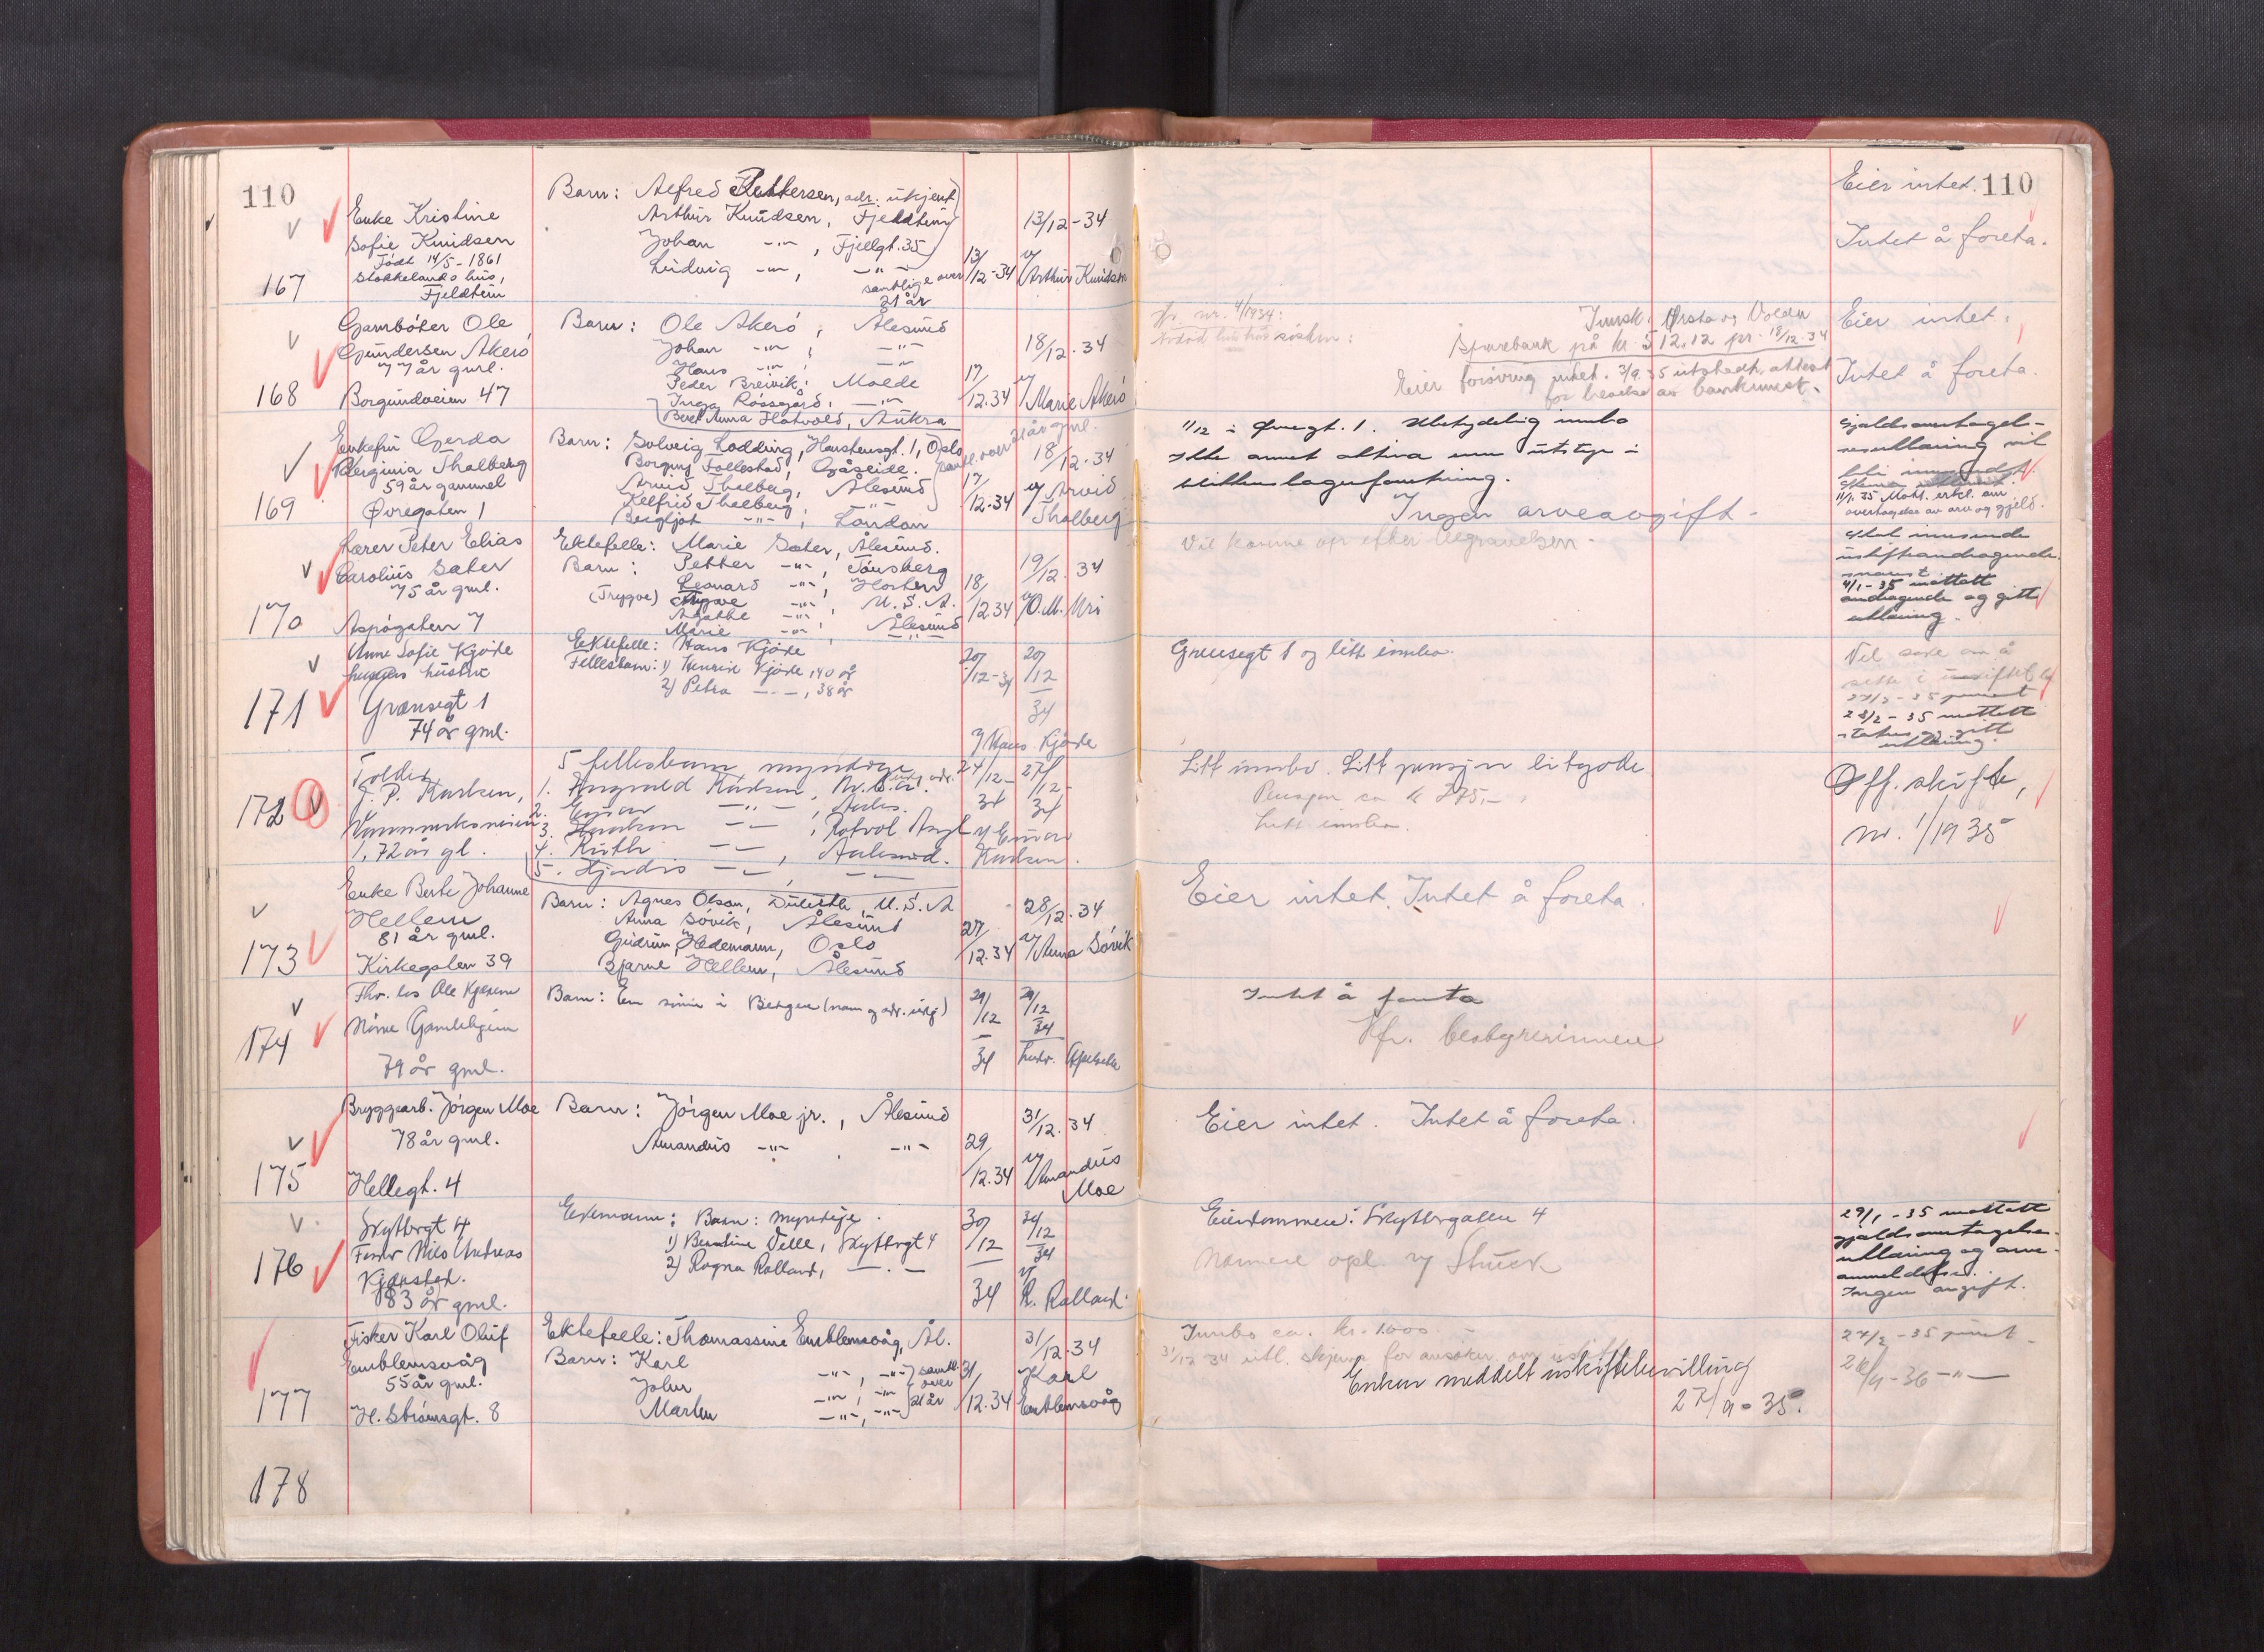 110
Enke Kristine
Sofie Knudsen
Födt 14/5-1861
Stokkelands hus,
Fjeldheim
167
Barn: Alfred Pettersen, adr. ukjent
Arthur Knudsen, Fjeldheim
Johan -"-, Fjellgt. 35
Ludvig -"-, -"-
samtlige over
21 år
13/12-34
13/12-34
v/ Arthur Knudsen
Garnbóter Ole
Gundersen Akeró
77 år gml.
168
Borgundveien 47
Barn: Ole Akeró, Ålesund
Johan -"-, -"-
Hans -"-, -"-
Peder Breivik, Molde
Inga Róssgård, -"-
Berit Anna Hatvold, Aukra
17/12.34
18/12.34
v/ Marie Akeró
Enkefru Gerda
Berginia Thalberg
59 år gammel
169
Övregaten 1
Barn: Solveig Lodding, Hanstensgt. 1, Oslo
Borgny Follestad, Gåseide.
Arvid Thalberg, Ålesund
Kelfrid Thalberg, -"-
Bergljot -"-, London
samtl. over 21 år gml.
17/12-34
18/12.34
v/ Arvid
Thalberg
Lærer Peter Elias
Carolius Sæter
75 år gml.
170
Aspógaten 7
Ektefelle: Marie Sæter, Ålesund.
Barn: Petter -"-, Tónsberg
Leonard -"-,
(Trygve) Trygve -"-, U.S.A.
Agathe -"-, Ålesund
Marie -"-, -"-
18/12.34
19/12.34
v/ O.M. Uri
Anne Sofie Kjöde
hustru
171
Grensegt 1
74 år gml.
Ektefelle: Hans Kjöde
Fellesbarn: 1) Henrik Kjöde, 40 år
2) Petra -"-, 38 år
20/12-34
20/12 34
v/ Hans Kjöde
172
J. P. Karlsen,
1, 72 år gl.
5 fellesbarn myndige
1. Ingvald Karlsen, N.
2. Einar -"-, Aales.
3. Haakon -"-, Rotvol Asyl
4. Ruth -"-, Aalesund.
5. Hjördis -"-, -"-
24/12-34
27/12-34
v/ Einar
Karlsen.
Enke Berte Johanne
Hellem
81 år gml.
173
Kirkegaten 39
Barn: Agnes Olson, Duluth, U.S.A
Anna Sóvik, Ålesund
Gudrun Hedemann, Oslo
Bjarne Hellem, Ålesund
27/12.34
28/12.34
v/ Anna Sóvik
Fhv. los Ole
174
Nörve Gamlehjem
79 år gml.
Barn: En sönn i Bergen (navn og adr. ukj)
29/12 34
29/12 34
Bryggearb. Jórgen Moe
78 år gml.
175
Hellegt. 4
Barn: Jórgen Moe jr., Ålesund
Amandus -"- -"-
29/12.34
31/12.34
v/ Amandus
Moe
Skyttergt 4
176
Nils Andreas
83 år gml.
Enkemann: Barn: myndige.
1) Berntine Velle, Skyttergt 4
2) Ragna Rolland, -"-
30/12 34
31/12 34
v/ R. Rolland
Fisker Karl Oluf
Emblemsvåg
55 år gml.
177
H. Strómsgt. 8
Ektefelle: Thomassine Emblemsvåg, Ål.
Barn: Karl -"-, -"-
John -"-, -"-
Marten -"-, -"-
samtl. over 21 år
31/12.34
31/12.34
Karl
Emblemsvåg
178
110
Eier intet.
Intet å foreta.
nr. 4/1934:
Innsk. i Örsta og Volda
Sparebank på kr. 512,12 pr. 18/12-34
Eier forövrig intet. 7/9.35 utstedt attest
for hevelse av bankinnsk.
Eier intet.
Intet å foreta.
11/12 i Övregt. 1. Ubetydelig innbo
Ikke annet aktiva enn utstyr i
Ingen arveavgift.
Vil komme op efter begravelsen.
Gjeldsovertagelses-
erklæring vil
bli innsendt.
11/1 35 Mott. erkl. om
overtagelse av arv og gjeld.
Skal innsende
uskifteandragende
snarest
4/1-35 mottatt
andragende og gitt
erklæring.
Grensegt 1 og litt innbo.
Vil söke om å
sitte i uskiftet bo
27/2-35 purret
28/2-35 mottatt
status og gitt
erklæring.
Litt innbo. Litt pensjon tilgode
Pensjon ca kr 275,-
Litt innbo.
Off. skifte,
nr. 1/1935
Eier intet. Intet å foreta.
Intet å foreta
Kfr. bestyrerinnen
Eier intet. Intet å foreta.
Eiendommen: Skyttergaten 4
Nærmere opl. v/ Struck
29/1-35 mottatt
gjeldsovertagelses-
erklæring og arve-
anmeldelse.
Ingen avgift.
Innbo ca. kr. 1000.-
31/12-34 utl. skjema for ansöker om uskifte
Enken meddelt uskiftebevilling
27/9-35.
27/2-35 purret